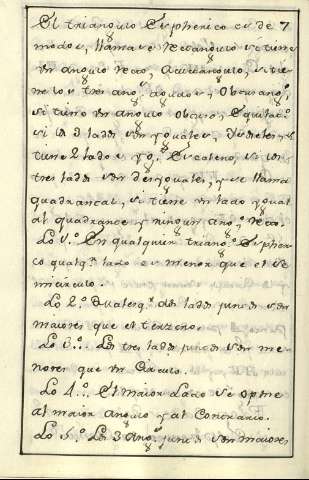 El triangulo Espherico es de 7
modos, llamase Rectangulo si tiene
un angulo Recto, Acutangulo, si tie-
ne los tres ang.s agudos, Obtusang.o,
si tiene un angulo Obtuso, Equilat.o
si los 3 lados son yguales, Ysoceles, si
tiene 2 lados yg.s Escaleno, si son
tres lados son desyguales, y se llama
quadrantal, si tiene un lado ygual
al quadrante y ningun ang.o Recto.
Lo 1.o En qualquier triang.o Espheri-
co qualq.r lado es menor que el se-
micirculo.
Lo 2.o Qualesq.r dos lados juntos son
maiores que el tercero.
Lo 3.o Los tres lados juntos son me-
nores que un Circulo.
Lo 4.o El maior Lado se opone
al maior angulo y al Contrario.
Lo 5.o Los 3 Ang.s juntos son maiores